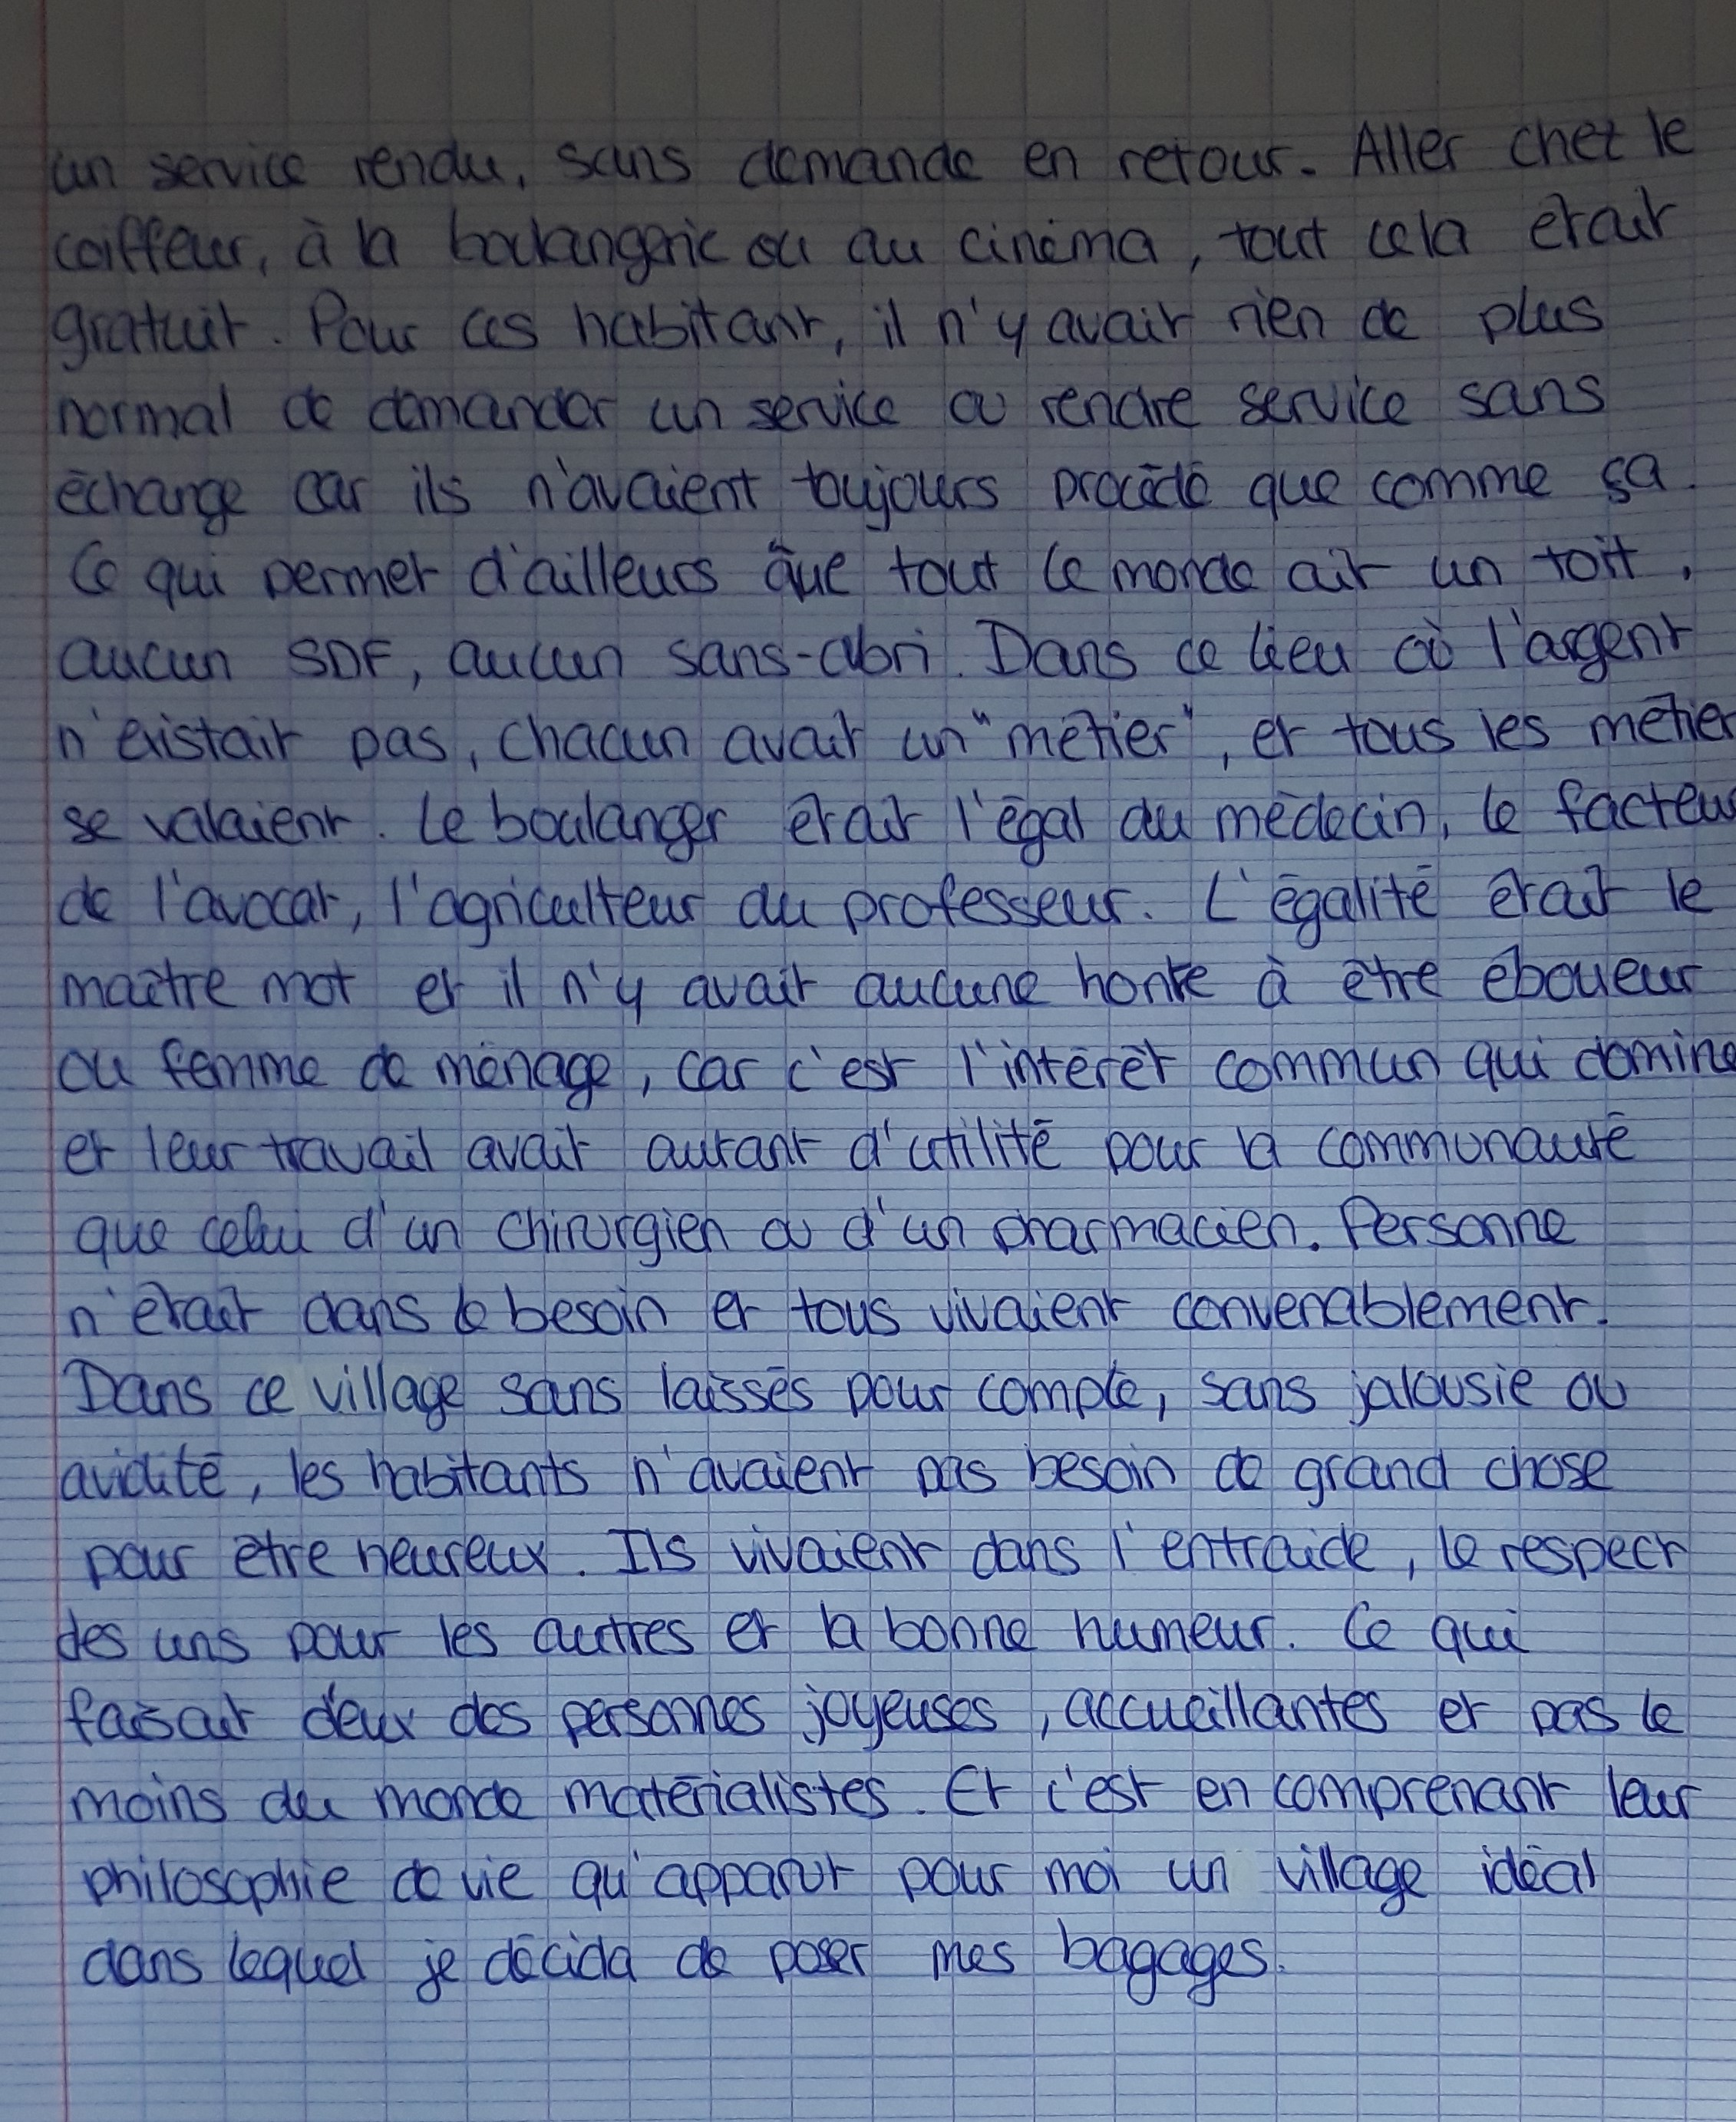 un service rendu, sans demande en retour. Aller chez le
coiffeur, à la boulangerie ou au cinéma, tout cela était
gratuit. Pour ces habitant, il n'y avait rien de plus
normal de demander un service ou rendre service sans
échange car ils n'avaient toujours procédé que comme sa.
Ce qui permet d'ailleurs que tout le monde ait un toit,
aucun SDF, aucun sans-abri. Dans ce lieu où l'argent
n'existait pas, chacun avait un "métier", et tous les métier
se valaient. Le boulanger était l'égal du médecin, le facteur
de l'avocat, l'agriculteur du professeur. L'égalité était le
maître mot et il n'y avait aucune honte à être éboueur
ou femme de ménage, car c'est l'intérêt commun qui domine
et leur travail avait autant d'utilité pour la communauté
que celui d'un chirurgien ou d'un pharmacien. Personne
n'était dans le besoin et tous vivaient convenablement.
Dans ce village sans laissés pour compte, sans jalousie ou
avidité, les habitants n'avaient pas besoin de grand chose
pour être heureux. Ils vivaient dans l'entraide, le respect
des uns pour les autres et la bonne humeur. Ce qui
faisait d'eux des personnes joyeuses, accueillantes et pas le
moins du monde matérialistes. Et c'est en comprenant leur
philosophie de vie qu'apparut pour moi un village idéal
dans lequel je décida de poser mes bagages.